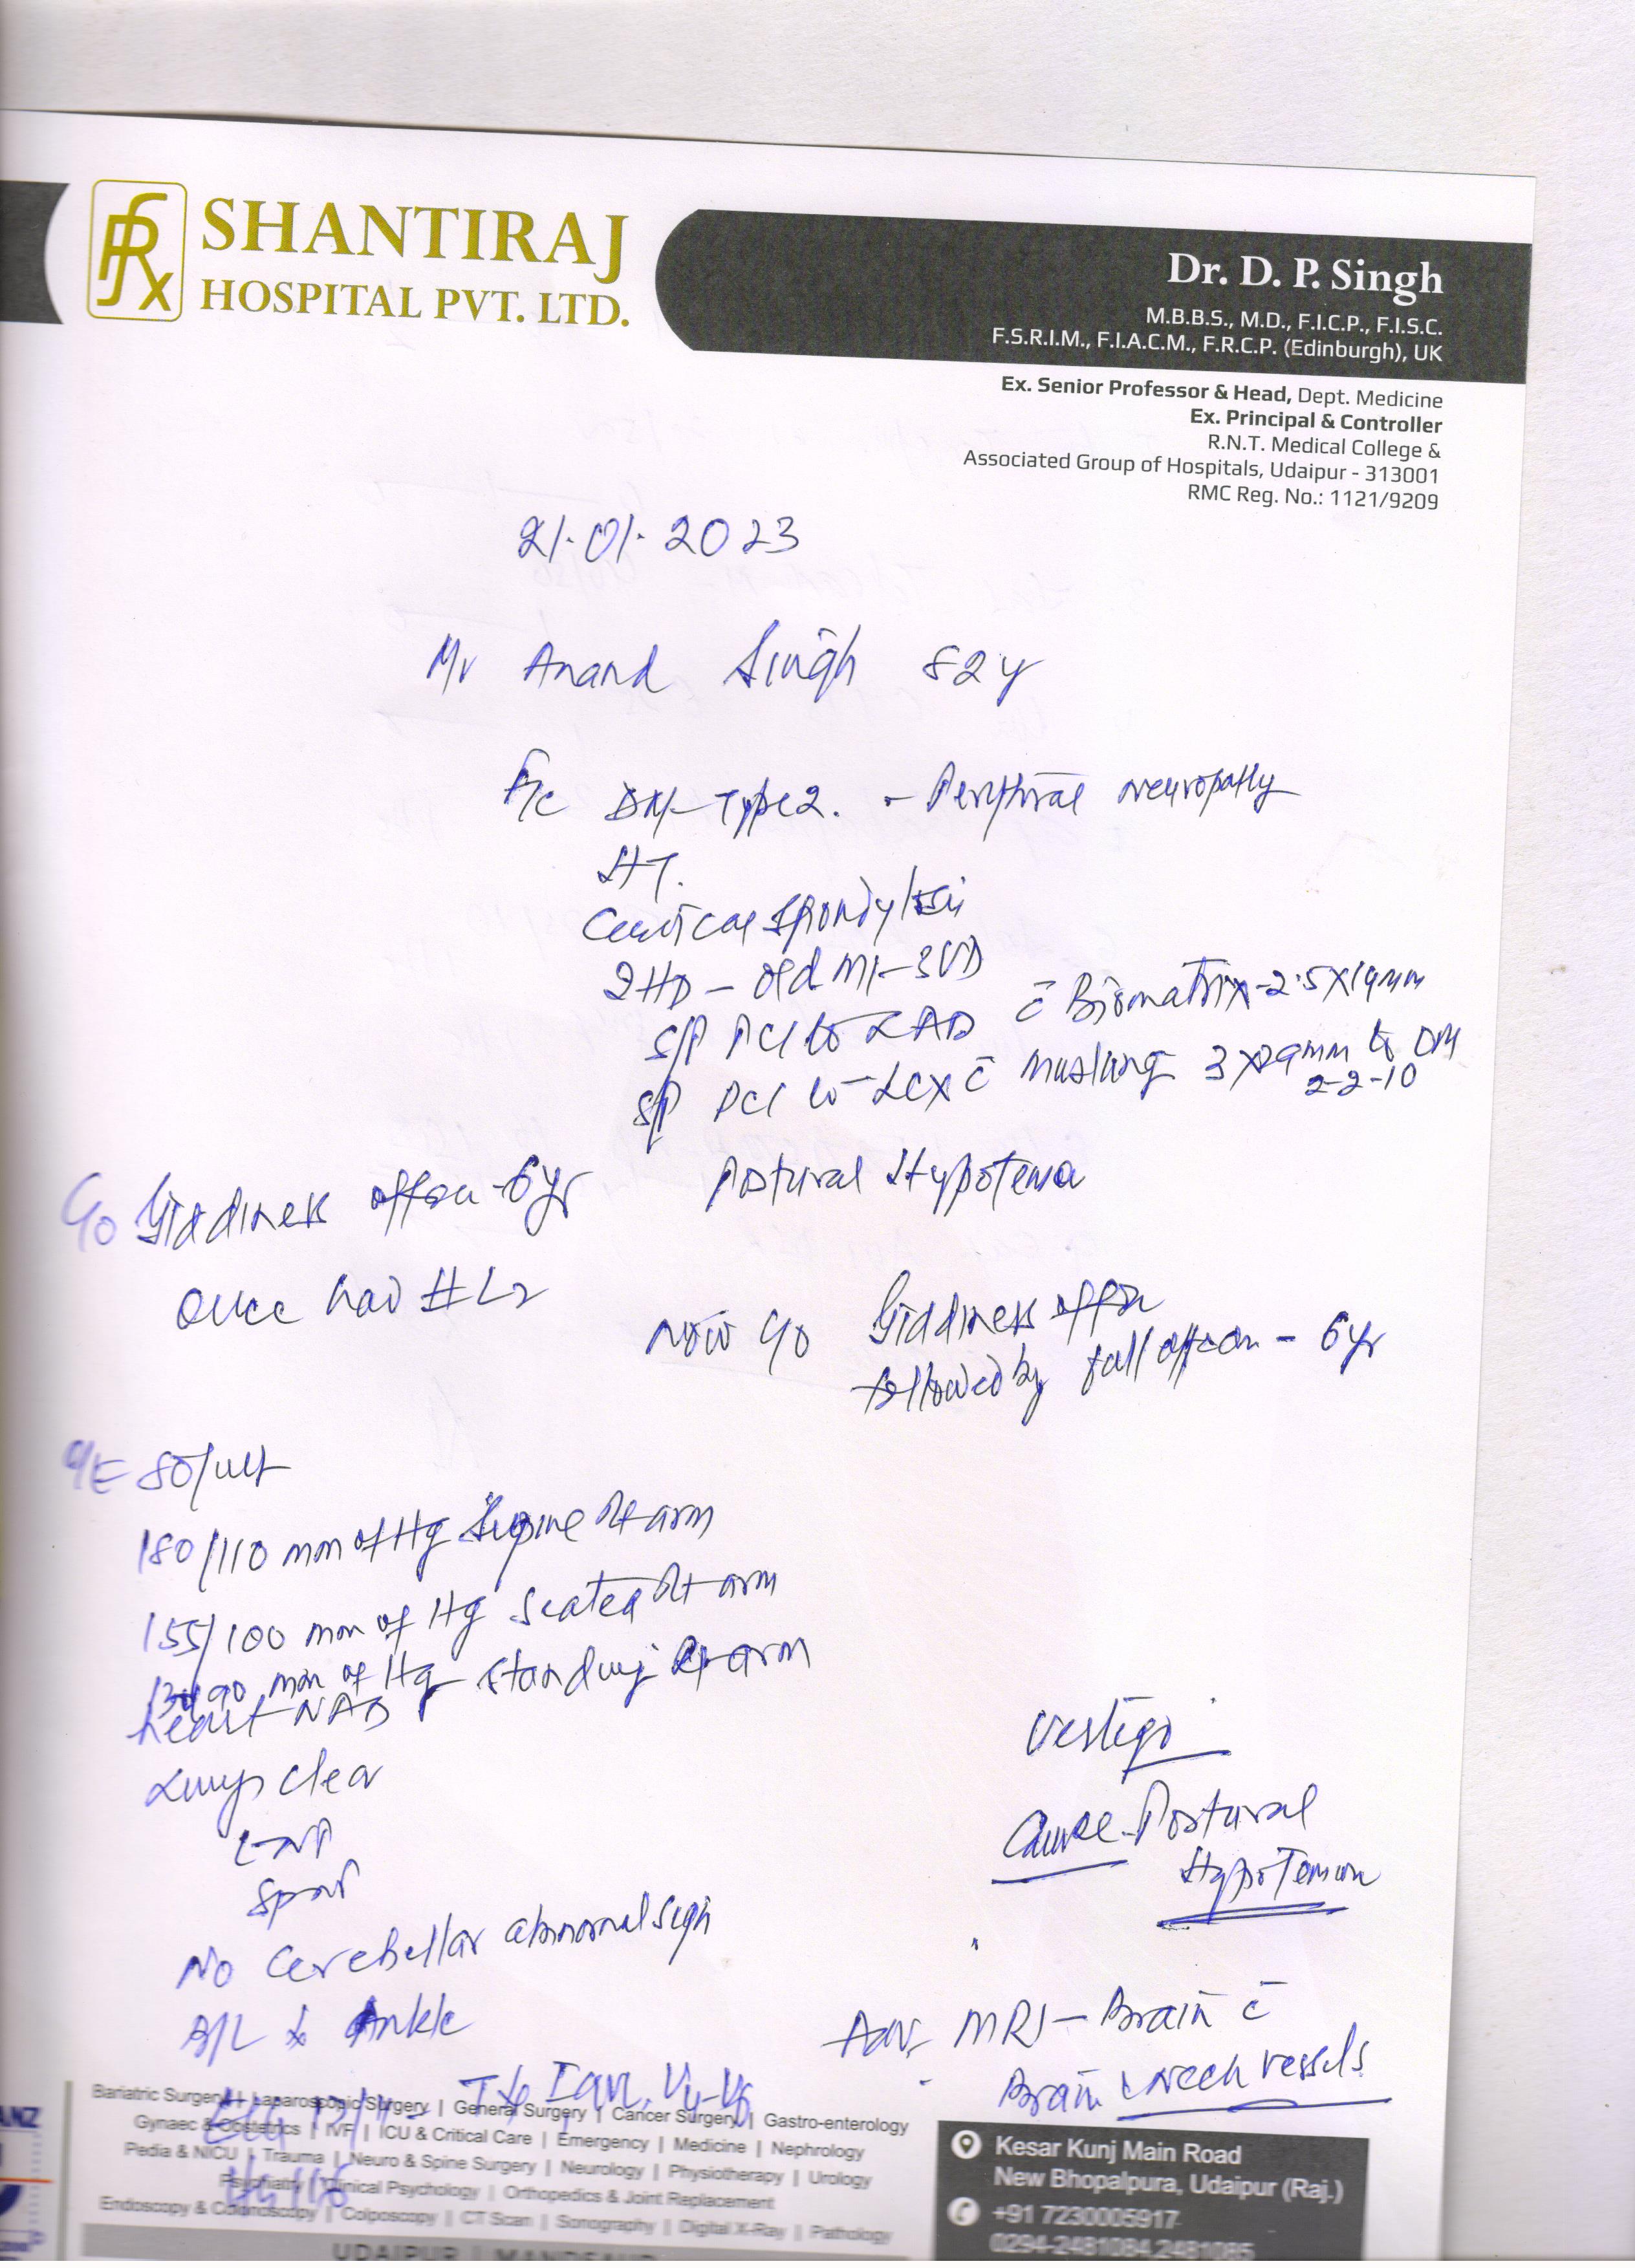 SHANTIRAJ
HOSPITAL PVT. LTD.
Dr. D. P. Singh
M.B.B.S., M.D., F.I.C.P., F.I.S.C.
F.S.R.I.M., F.I.A.C.M., F.R.C.P. (Edinburgh), UK
Ex. Senior Professor & Head, Dept. Medicine
Ex. Principal & Controller
R.N.T. Medical College &
Associated Group of Hospitals, Udaipur - 313001
RMC Reg. No.: 1121/9209
21.01.2023
Mr Anand Singh 82y
DM-Type 2. - Peripheral neuropathy
HT.
Cervical Spondylosis
IHD - Old MI - 3VD
S/P PCI to LAD c̄ Biomatrix-2.5X19mm
S/P PCI to LCX c̄ Mustang 3X29mm to OM
2-2-10
C/o Giddiness off&on - 6yr
Postural Hypotension
Once had # L2
Now C/o Giddiness off&on
followed by fall off&on - 6yr
O/E 80/mt
180/110 mm of Hg Supine Rt arm
155/100 mm of Hg Seated Rt arm
130/90 mm of Hg Standing Rt arm
heart-NAD
Lungs clear
L-NP
No Cerebellar abnormal sign
B/L ↓ Ankle
T↓ I, aVL, V4-V6
Vertigo
Cause - Postural
Hypotension
Adv. MRI - Brain c̄
Brain & Neck vessels
Bariatric Surgery | Laparoscopic Surgery | General Surgery | Cancer Surgery | Gastro-enterology
Gynaec & Obstetrics | IVF | ICU & Critical Care | Emergency | Medicine | Nephrology
Pedia & NICU | Trauma | Neuro & Spine Surgery | Neurology | Physiotherapy | Urology
Psychiatry | Clinical Psychology | Orthopedics & Joint Replacement
Endoscopy & Colonoscopy | Colposcopy | CT Scan | Sonography | Digital X-Ray | Pathology
UDAIPUR | MANDSAUR
Kesar Kunj Main Road
New Bhopalpura, Udaipur (Raj.)
+91 7230005917
0294-2481084, 2481085